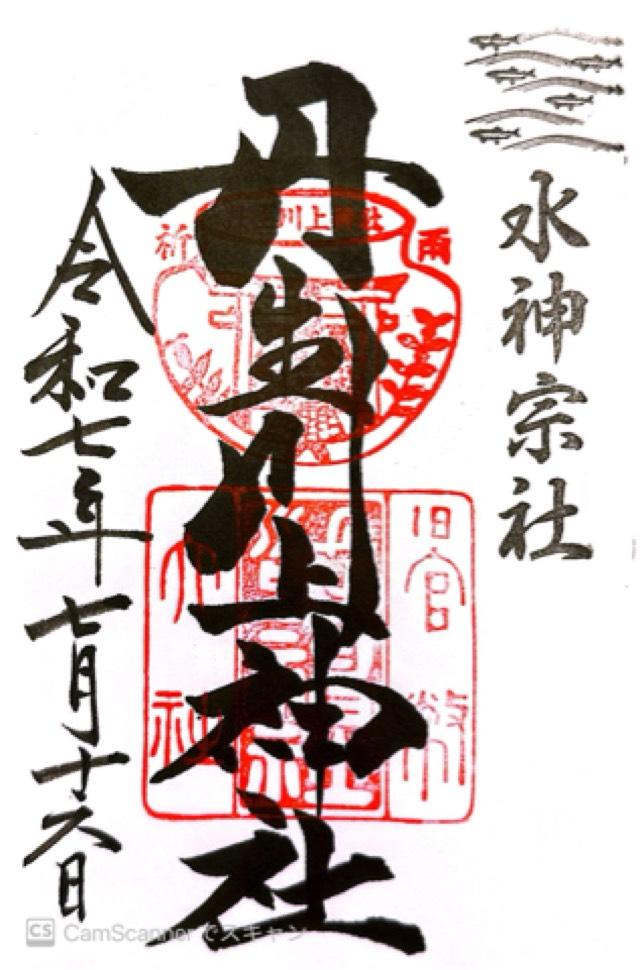 水神宗社
丹生川上神社
令和七年七月十六日
川上
祈
雨
旧官幣
大
神社
CS CamScannerでスキャン